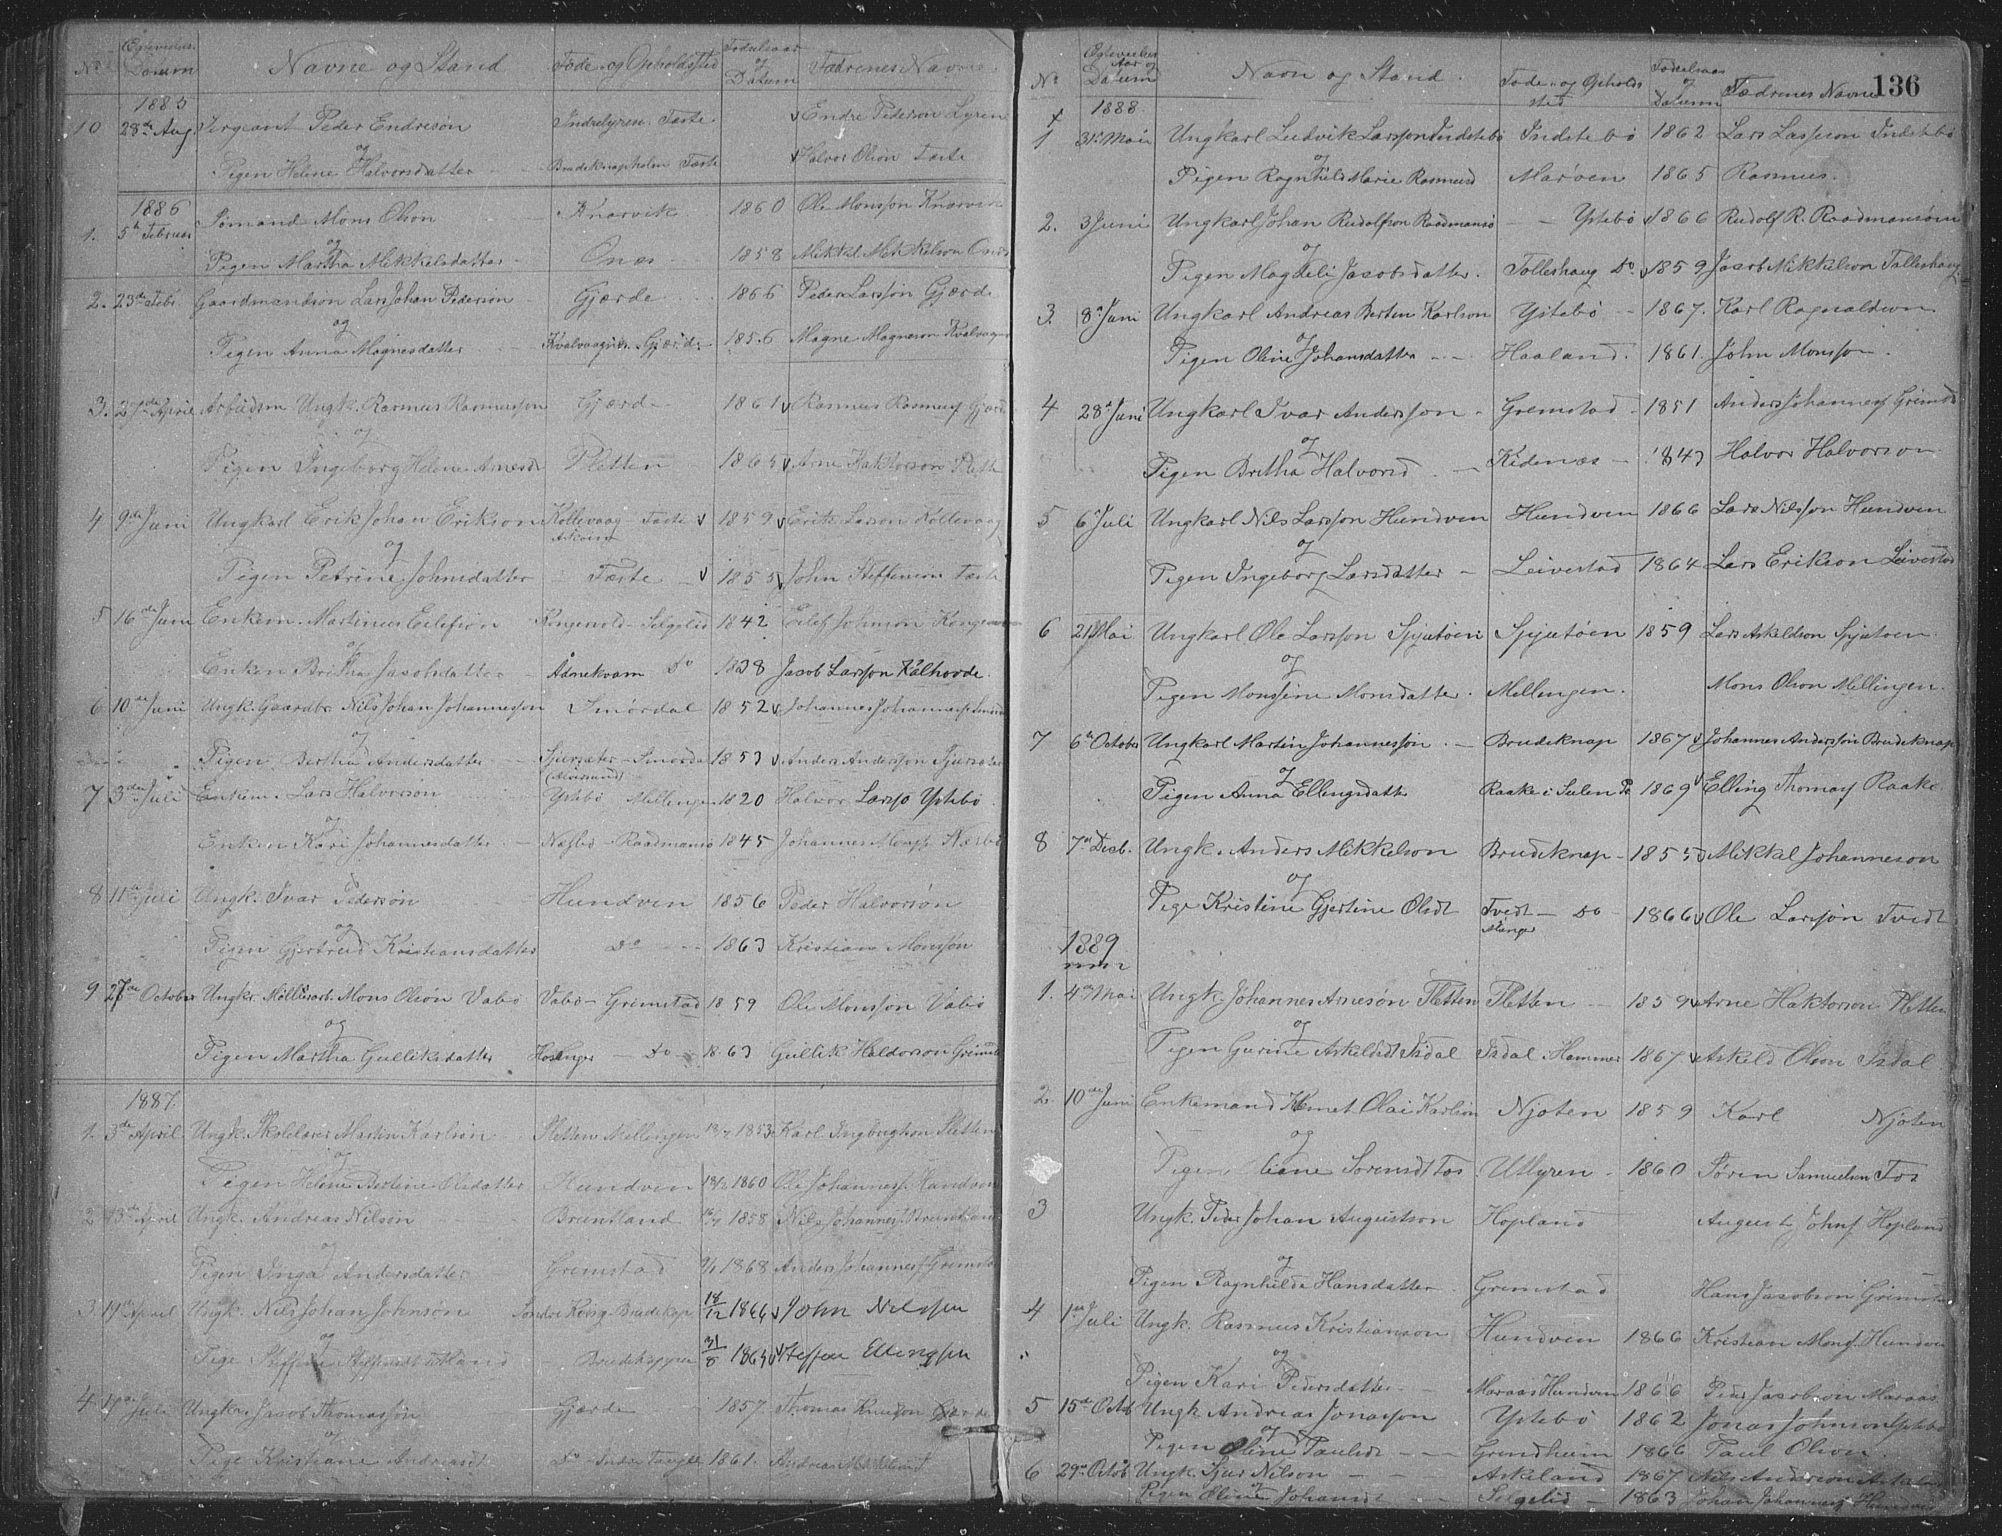 No
Datum
Navne og Stand
Føde- og Opholdsted
Fødselsaar og Datum
Fædrenes Navne
1885
10 28de Aug. Sergeant Peder Endresøn Indrelyren Fæste Endre Pederson Lyren
og
Pigen Helene Halvorsdatter Brudeknapholm Fæste Halvor Olson Fæste
1886
1. 5te Februar Sømand Mons Olsøn Knarvik 1860 Ole Monsson Knarvik
og
Pigen Martha Mikkelsdatter Onæs 1858 Mikkel Mikkelson Onæs
2. 23de Febr. Gaardmandsøn Lars Johan Pedersøn Gjærde 1866 Peder Larsson Gjærde
og
Pigen Anna Magnesdatter Kvalvaagnes Gjærde 1856 Magne Magneson Kvalvaagnes
3. 27de April Arbeidsm Ungk. Rasmus Rasmusson Gjærde 1861 Rasmus Rasmusf Gjærde
og
Pigen Ingeborg Helene Arnesd Fletten 1865 Arne Haktorson Flette
4 9de Juni Ungkarl Erik Johan Erikson Kollevaag Fæste 1859 Erik Larson Kollevaag
Askøen
og
Pigen Petrine Johnsdatter Fæste 1855 John Steffenson Fæste
5 16de Juni Enkem. Martinus Eilefsøn Kongsvold Selgelid 1842 Eilef Johnson
og
Enken Britha Jacobsdatter Ådnekvam Do 1838 Jacob Larsson Kålhovde.
6 10de Juni Ungk. Gaardbr. Nils Johan Johannesson Smørdal 1852 Johannes Johannesf Smørd
og
Pigen Bertha Andersdatter Sjursæter Smørdal 1853 Anders Andersson Sjursæter
(Alversund)
7 3die Juli Enkem. Lars Halvorsøn Ystebø Mellingen 1820 Halvor Larsf Ystebø.
og
Enken Kari Johannesdatter Næsbø Raadmansø 1845 Johannes Monsf Næsbø
8 11te Juli Ungk. Ivar Pedersøn Hundven 1856 Peder Halvorsøn
og
Pigen Gjertrud Kristiansdatter Do 1863 Kristian Monsøn
9 27de October Ungkr. Møllerarb. Mons Olsøn Vabø Vabø Grimstad 1859 Ole Monsson Vabø
og
Pigen Martha Gulliksdatter Hosanger Do 1863 Gullik Haldorson Grimst
1887.
1. 3de April Ungk. Skolelærer Martin Karlsøn Fletten Mellingen 1853 Karl Fletten
og
Pigen Helene Bertine Olsdatter Hundven 1860 Ole Johannesf. Hundven
2 13de April Ungk. Andreas Nilsøn Bruntland 1858 Nils Johannesf Bruntland
og
Pigen Inga Andersdatter Grimstad 1868 Anders Johannesf Grimsta
3. 19de April Ungk. Nils Johan Johnsøn Brudeknap 18/12 1866 John Nilssen
og
Pige Steffine Brudeknappen 31/8 1863 Steffen Ellingsen
4 Juli Ungkar Jacob Thomassøn Gjærde 1857. Thomas Knudson Gjærde
og
Pige Kristiane Andreasd Do 1861. Andreas
136
No
Ægtevielses Aar og Datum
Navn og Stand.
Føde- og Opholds sted
Fødselsaar og Datum
Fædrenes Navne
1888
1 31. Mai Ungkarl Ludvik Larsson Indstebø Indstebø 1862 Lars Larsson Indstebø
og
Pigen Ragnhild Marie Rasmusd Marøen 1865 Rasmus.
2. 3 Juni Ungkarl Johan Rudolfson Raadmansø Ystebø 1866 Rudolf R. Raadmansøen
og
Pigen Magdeli Jacobsdatter. Folleshaug Do. 1859 Jacob Mikkelson Folleshaug
3. 8de Juni Ungkarl Andreas Berten Karlson Ystebø 1867. Karl Ragnaldson
og
Pigen Oline Johansdatter Haaland. 1861. John Monsson.
4 28de Juni Ungkarl Ivar Andersson Gremstad 1851 Anders Johannesf Grimstd
og
Pigen Britha Halvorsd Kidenæs 1843 Halvor Halvorson
5 6 Juli Ungkarl Nils Larsson Hundven Hundven 1866 Lars Nilsson Hundven
og
Pigen Ingeborg Larsdatter Leivestad 1864 Lars Erikson Leivestad
6 21 Mai Ungkarl Ole Larsson Spjutøen Spjutøen 1859 Lars Askeldson Spjutøen
og
Pigen Monsine Monsdatter. Mellingen. Mons Olson Mellingen.
7 6te October Ungkarl Martin Johannesson Brudeknap 1867 Johannes Andersson Brudeknap
og
Pigen Anna Ellingsdatter Raake i Sulen P 1869 Elling Thomasf Raake.
8 7de Decb. Ungk. Anders Mikkelson Brudeknap 1855 Mikkal Johanneson
og
Pige Kristine Gjertine Olsdt Tvedt Do 1866 Ole Larsson Tvedt
Manger
1889
1. 4de Mai Ungk. Johannes Arnesøn Fletten Fletten 1859 Arne Haktorson Fletten
og
Pigen Gurine Askeldsdt Isdal Isdal i Hammer 1867 Askeld Olson Isdal
2. 10de Juni Enkemand Kornet Olai Karlsøn Njøten 1859 Karl Njøten
og
Pigen Sorensdt Fos Utlyren 1860 Søren Samuelsen Fos
3 Ungk. Peder Johan Augustson Hopland August Johnf Hopland
og
Pigen Ragnhilde Hansdatter Grimstad Hans Jacobson Grimsta
4 1ste Juli Ungk. Rasmus Kristianson Hundven 1866 Kristian Monsf. Hundven
og
Pigen Kari Pedersdatter Maraas Hundven 1866 Peder Jacobson Maraas
5 15de Octob Ungk. Andreas Jonasson Ystebø 1862 Jonas Johnson Ystebø
og
Pigen Oline Paulsdt Grindheim 1866 Paul Olson.
6 29de Octob. Ungk. Sjur Nilson Askeland 1867 Nils Anderson Askeland
og
Pigen Eline Johansdt Selgelid 1863 Johan Johannesf